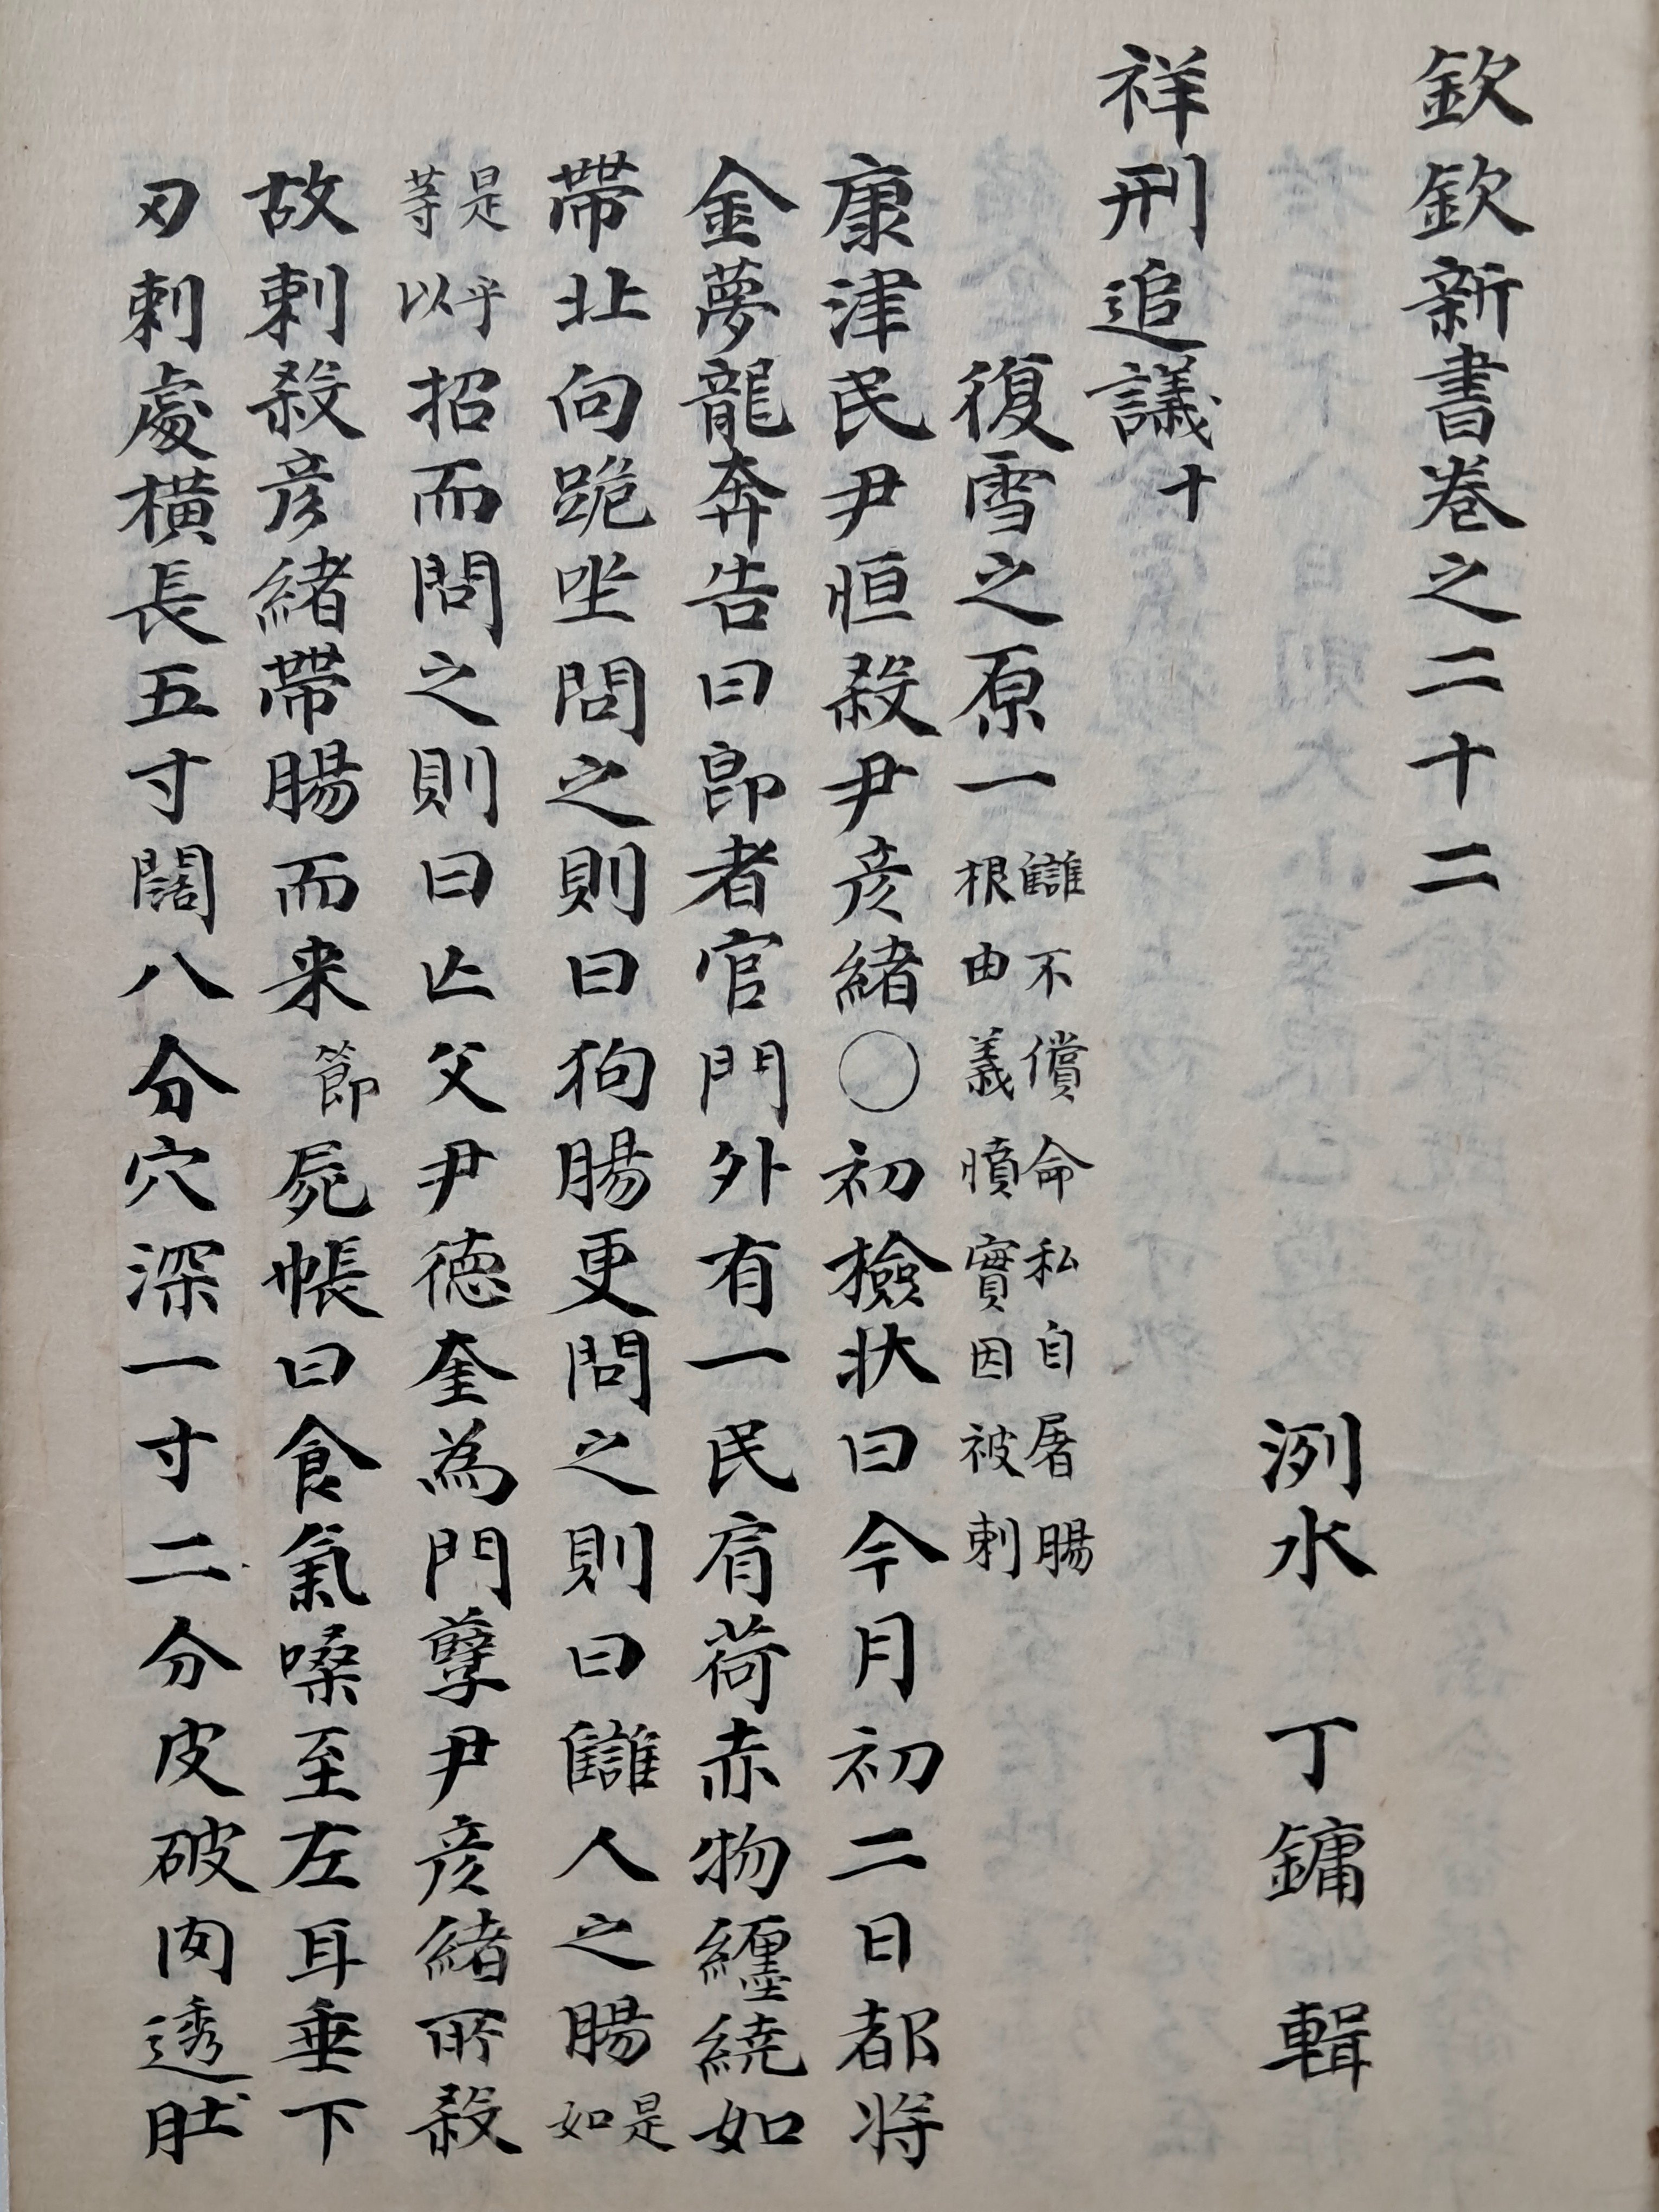 欽欽新書卷之二十二
洌水 丁鏞 輯
祥刑追議十
復雪之原一 讎不償命私自屠腸 根由義憤實因被刺
康津民尹恒殺尹彦緒○初檢狀曰今月初二日都將
金夢龍奔告曰卽者官門外有一民肩荷赤物纏繞如
帶北向跪坐問之則曰狗腸更問之則曰讎人之腸是如
是乎等以招而問之則曰亡父尹德奎為門孽尹彦緒所殺
故刺殺彦緒帶腸而来節屍帳曰食氣嗓至左耳垂下
刃刺處橫長五寸濶八分穴深一寸二分皮破肉透肚